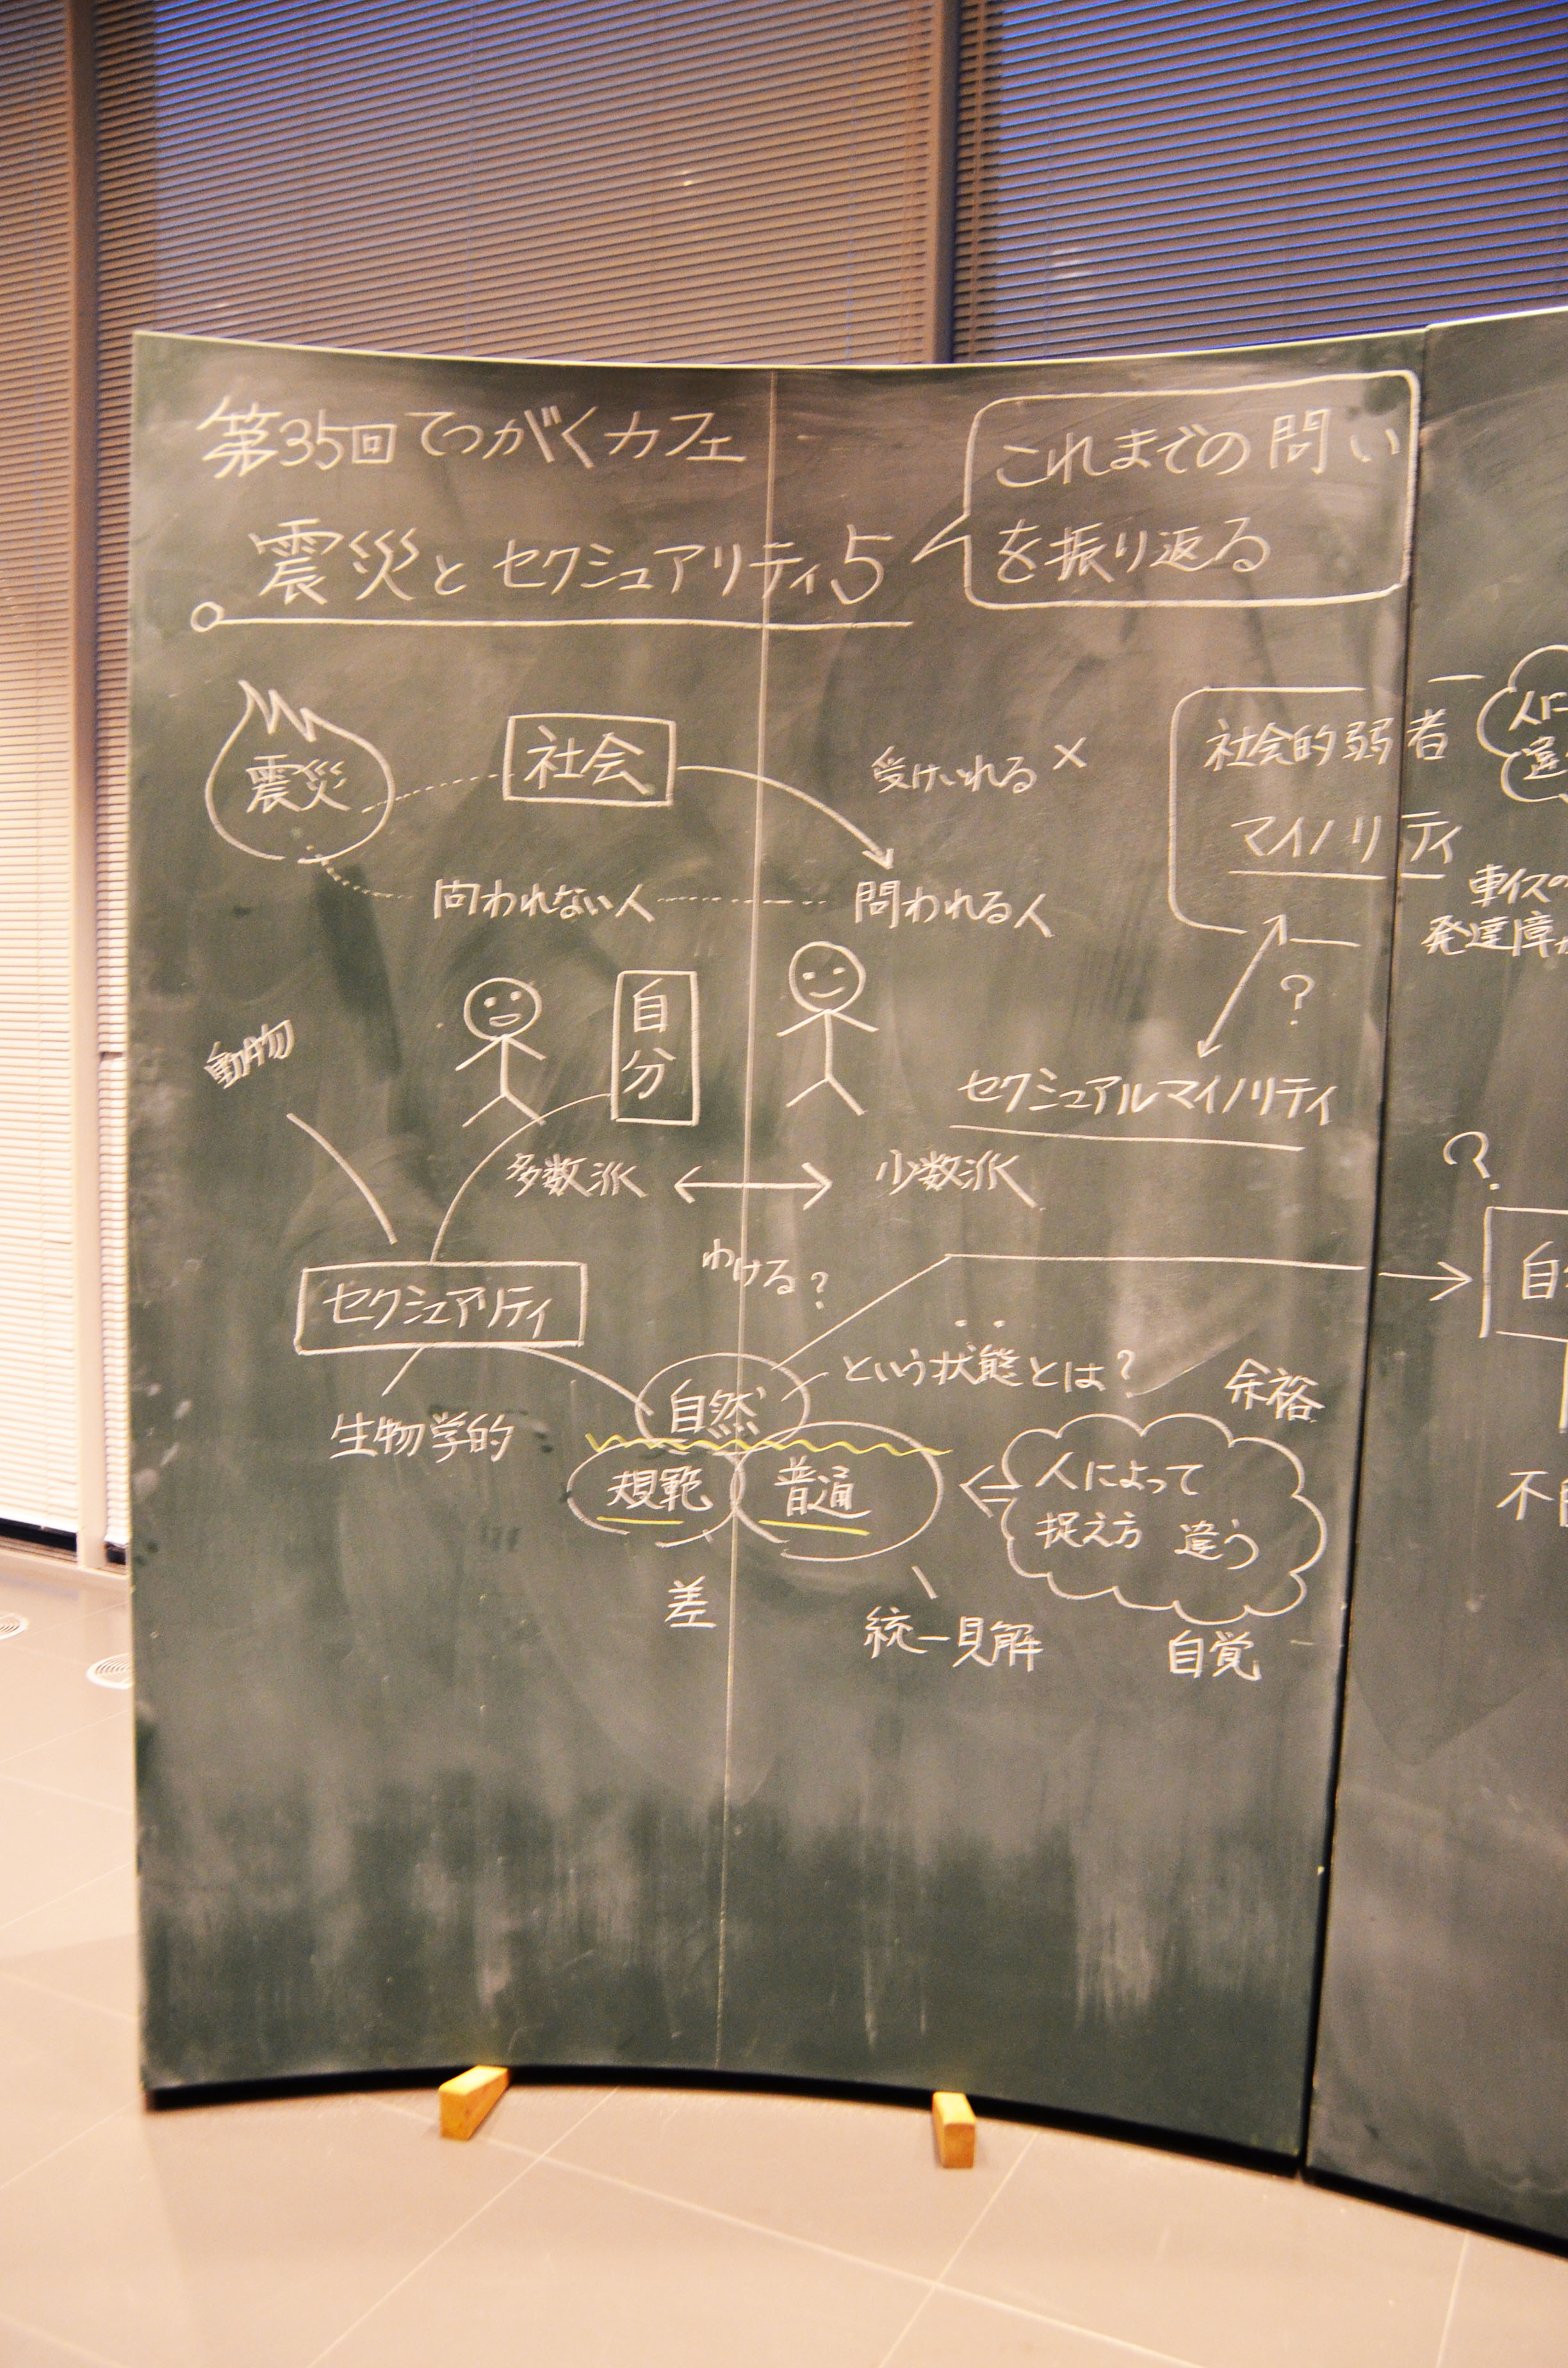 第35回てつがくカフェ
震災とセクシュアリティ5
これまでの問い
を振り返る
震災
社会
受けいれる ×
社会的弱者
マイノリティ
人に
違
車イスの
発達障
問われない人
問われる人
?
動物
自分
セクシュアルマイノリティ
多数派 ↔ 少数派
?
わける?
セクシュアリティ
自
という状態とは?
余裕
自然
生物学的
規範
普通
人によって
捉え方 違う
不
差
統一見解
自覚